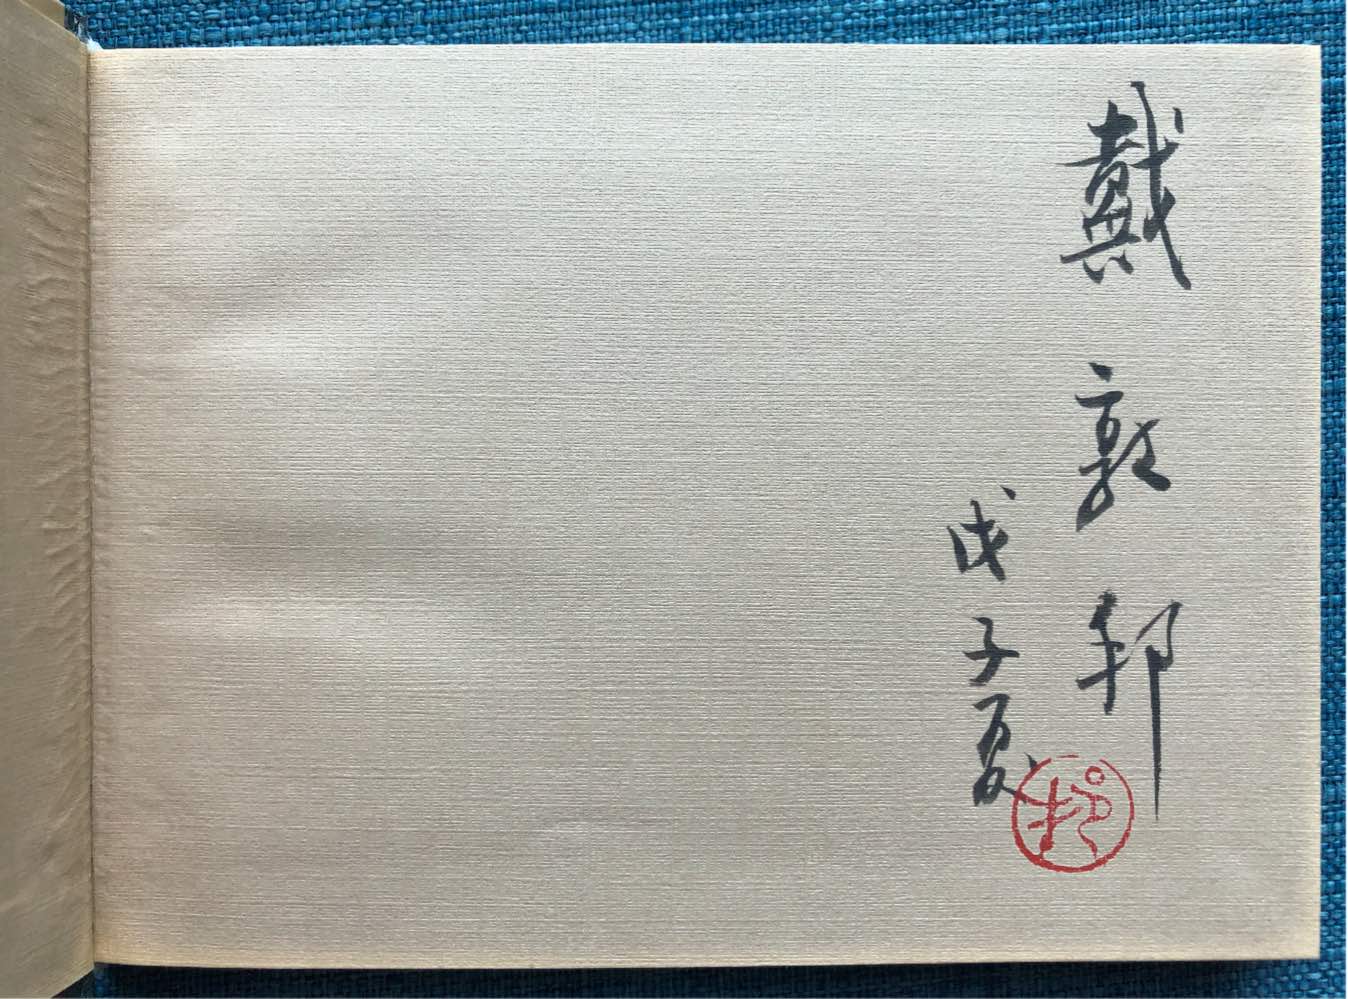 戴敦邦
戊子夏